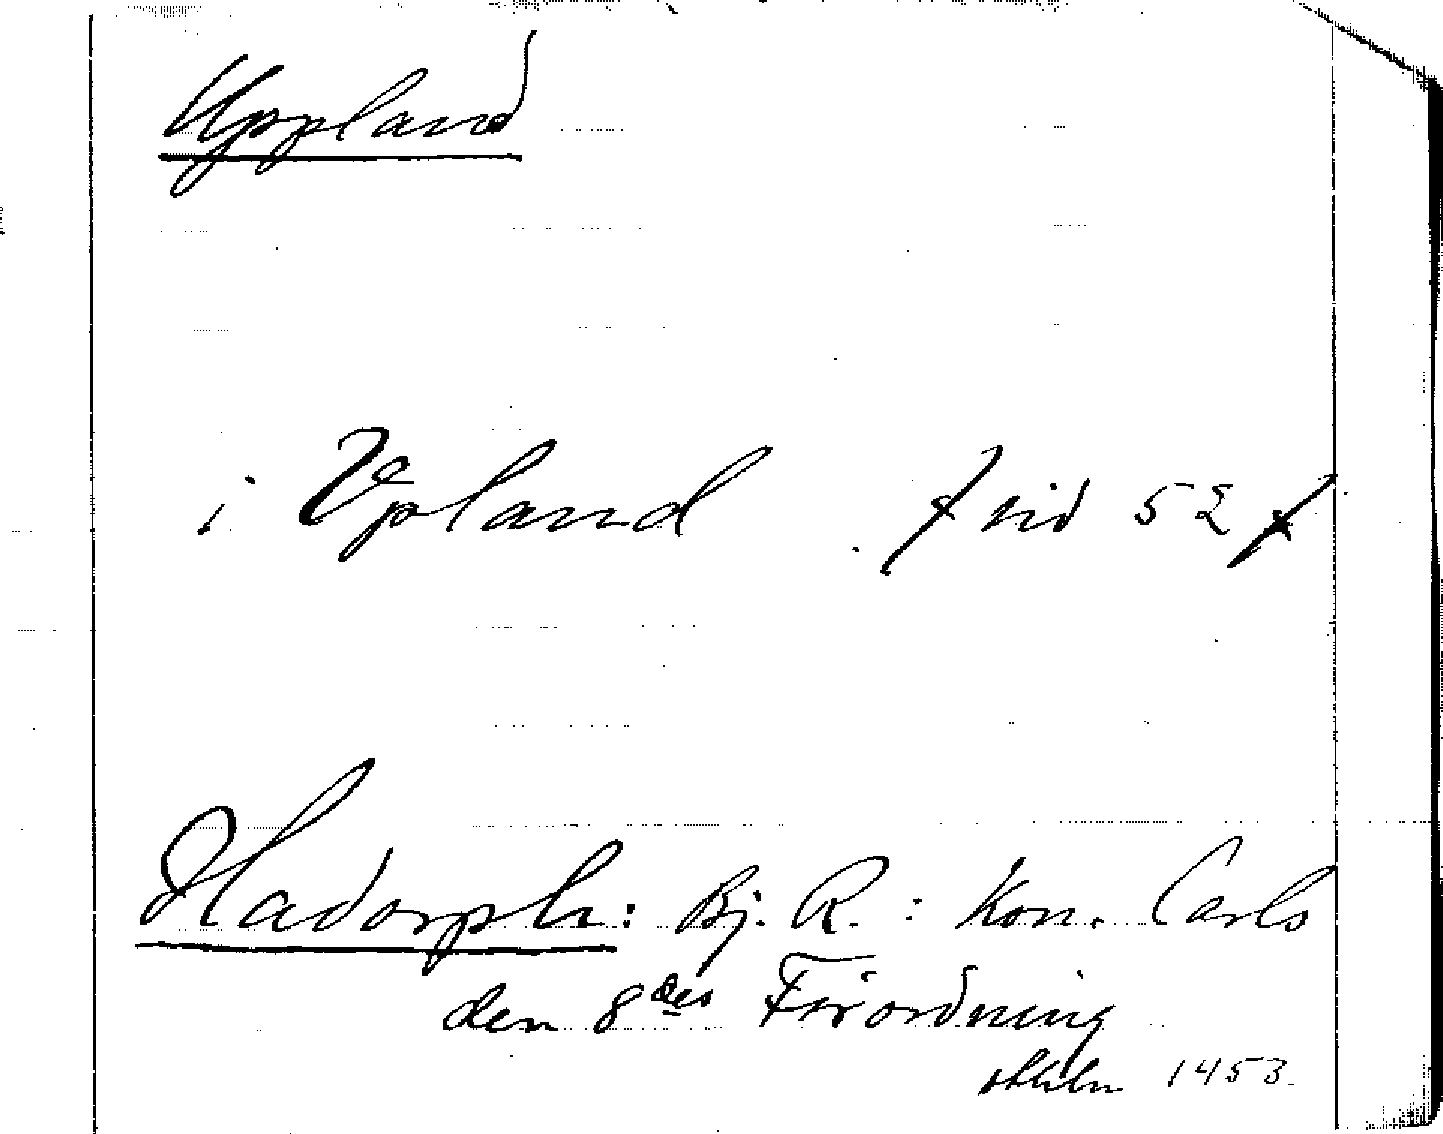 Uppland
i Vpland / vid 52 /
Hadorph: Bj. R. : Kon. Carls
den 8des Förordning
sthlm 1453.